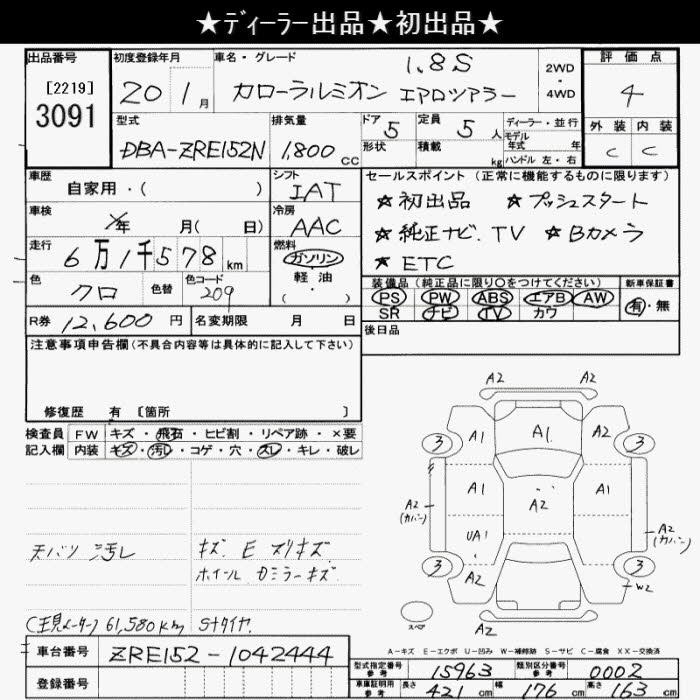 ★ディーラー出品★初出品★
出品番号 初度登録年月 車名・グレード 1.8S 2WD・4WD 評価点
[2219] 3091 20 1月 カローラルミオン エアロツアラー 4
型式 排気量 ドア 5 定員 5人 ディーラー・並行 外装 内装
DBA-ZRE152N 1,800cc 形状 積載 kg モデル年式 年 ハンドル 左・右 C C
車歴 自家用・( ) シフト IAT セールスポイント(正常に機能するものに限ります)
車検 年 月( 日) 冷房 AAC ★初出品 ★プッシュスタート
走行 6万1千578km 燃料 ガソリン ★純正ナビ.TV ★Bカメラ
軽油 ・( ) ★ETC
色 クロ 色替 色コード 209 装備品(純正品に限り○をつけてください) 新車保証書
PS PW ABS エアB AW 有・無
SR ナビ TV カワ
R券 12,600円 名変期限 月 日 後日品
注意事項申告欄(不具合内容等は具体的に記入して下さい)
修復歴 有 〔箇所 〕
検査員 FW キズ・飛石・ヒビ割・リペア跡・×要
記入欄 内装 キズ・汚レ・コゲ・穴・スレ・キレ・破レ
A2 A2
3 A1 A1 A2 3
A1 A2 A1
A2 (カバー) A2 (カバー)
UA1
3 A2 3
W2
A2
天バリ 汚レ キズ E スリキズ
ホイール Dミラーキズ
(現メーター) 61,580km Sタイヤ
スペア
A-キズ E-エクボ U-凹み W-補修跡 S-サビ C-腐食 XX-交換済
車台番号 ZRE152-1042444
型式指定番号 参考 15963 類別区分番号 参考 0002
登録番号 車庫証明用 参考 長さ 421cm 幅 176cm 高さ 163cm